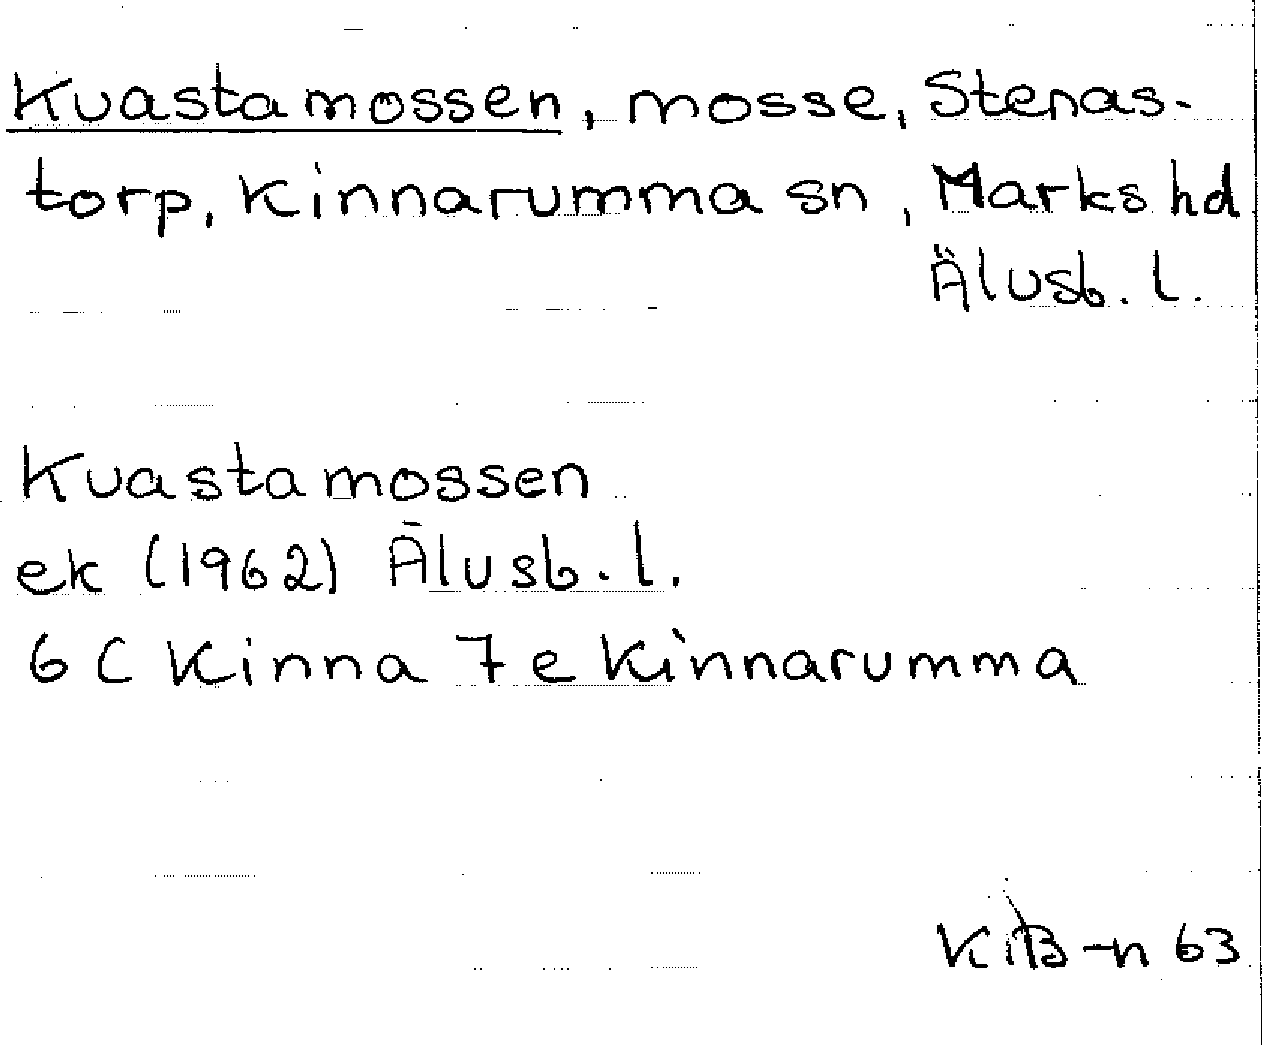 Kvastamossen, mosse, Stenas-
torp, Kinnarumma sn, Marks hd
Älvsb. l.
Kvastamossen
ek (1962) Älvsb. l.
6 C Kinna 7 e Kinnarumma
K iB-n 63